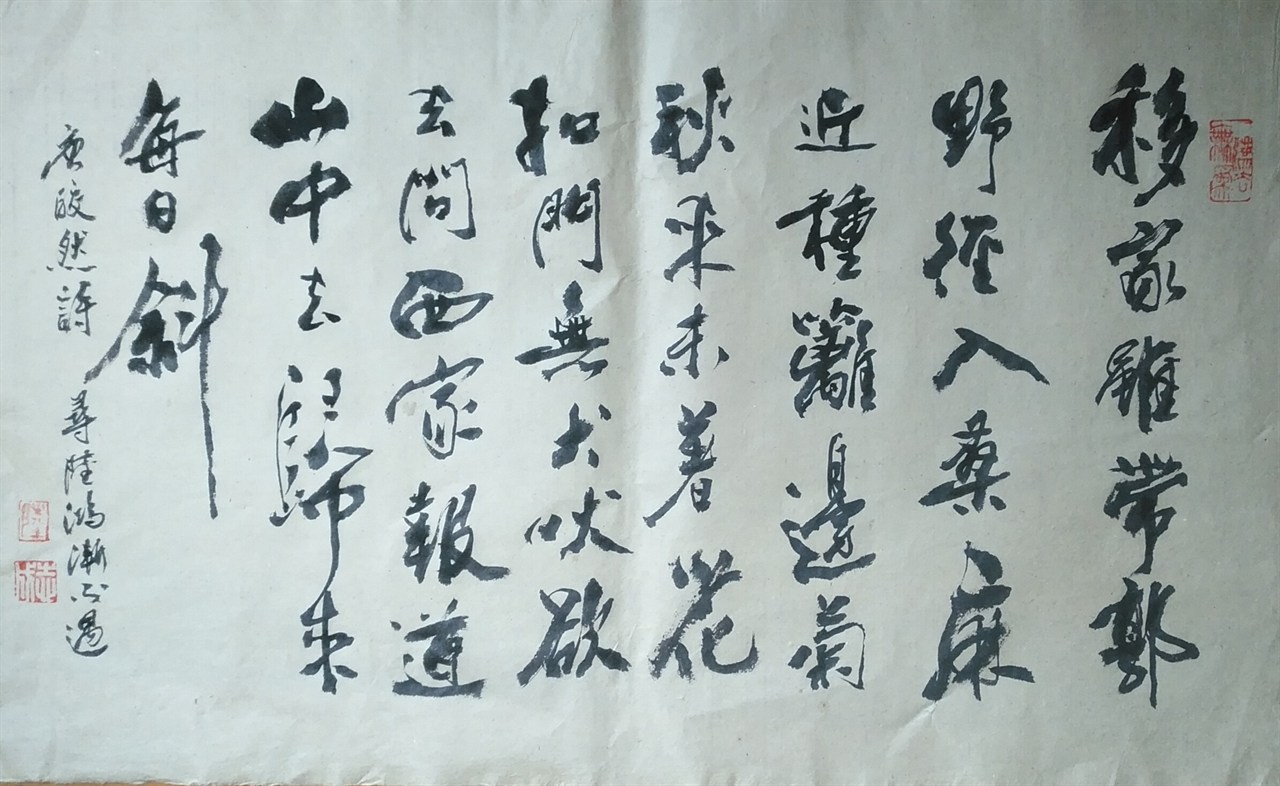 移家雖帶郭
野徑入桑麻
近種籬邊菊
秋來未著花
扣門無犬吠欲
去問西家報道
山中去歸來
每日斜
唐皎然詩 尋陸鴻漸不遇